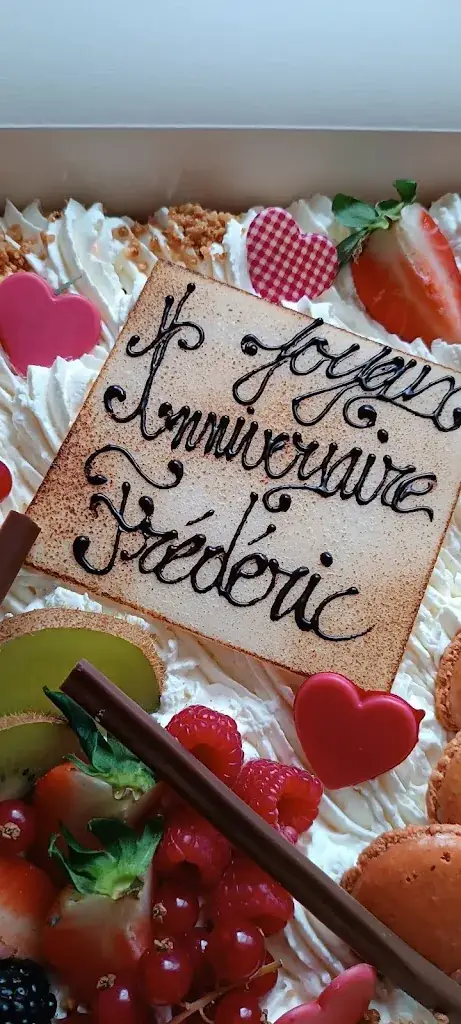 Joyeux
Anniversaire
Frédéric